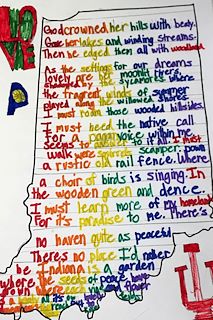 God crowned her hills with beauty,
Gave her lakes and winding streams.
Then he edged them all with woodland
As the setting for our dreams
lovely are her moonlit rivers,
shadowed by the sycamores, where
the fragrent winds of summer
played along the willowed shores
I must roam those wooded hillsides.
I must heed the native call
for a pagan voice within me
seems to answer to it all. I must
walk where squirrels scamper down
a rustic old rail fence. Where
a choir of birds is singing. In
the wooden green and dence.
I must learn more of my homeland
For it's paradise to me. There's
no haven quite as peaceful
There's no place I'd rather
be Indiana is a garden
where the seeds of peace have
grown where each vine and flower